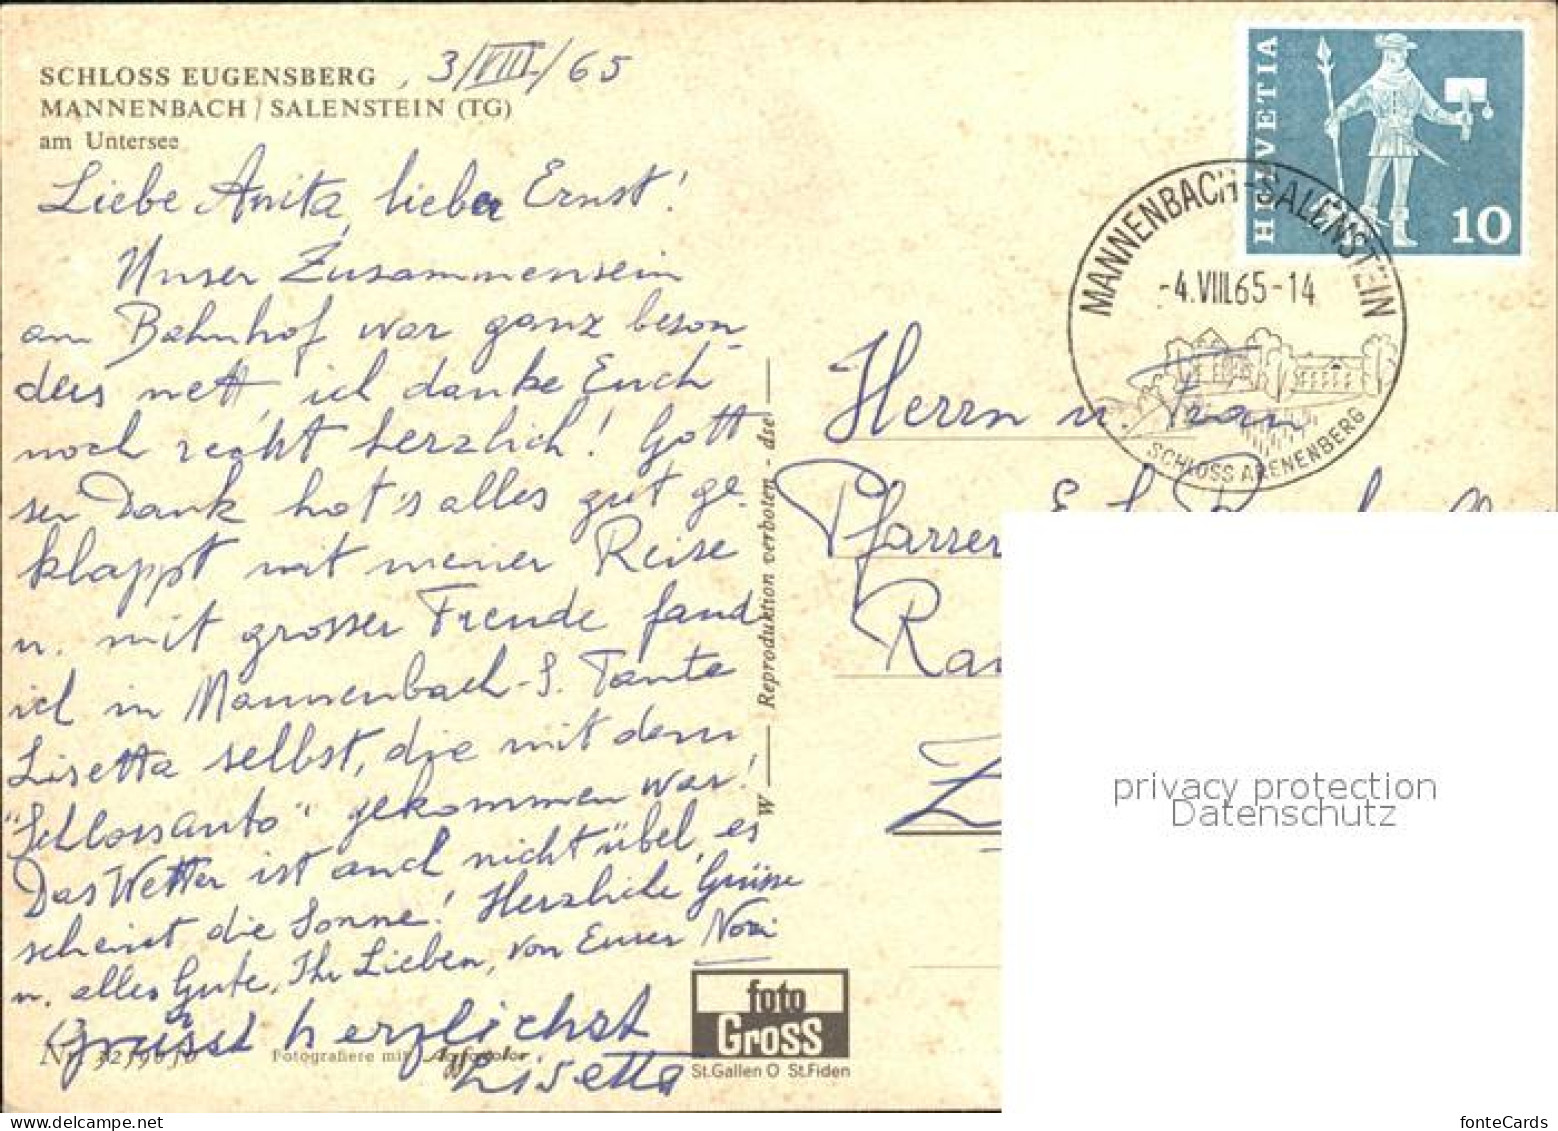 SCHLOSS EUGENSBERG , 3/VIII./65
MANNENBACH / SALENSTEIN (TG)
am Untersee
Liebe Anita, lieber Ernst!
Unser Zusammensein
am Bahnhof war ganz beson-
ders nett, ich danke Euch
noch recht herzlich! Gott
sei Dank hat's alles gut ge-
klappt mit meiner Reise
u. mit grosser Freude fand
ich in Mannenbach-S. Tante
Lisetta selbst, die mit dem
"Schlossauto" gekommen war!
Das Wetter ist auch nicht übel, es
scheint die Sonne! Herzliche Grüsse
u. alles Gute, Ihr Lieben, von Eurer Nori
Grüsst herzlichst
Lisetta
Nr.
Fotografiere mit Agfacolor
foto
Gross
St.Gallen O St.Fiden
W — Reproduktion verboten - dse —
HELVETIA
10
MANNENBACH-SALENSTEIN
-4.VIII.65-14
SCHLOSS ARENENBERG
Herrn u. Frau
Pfarrer E.
privacy protection
Datenschutz
fonteCards